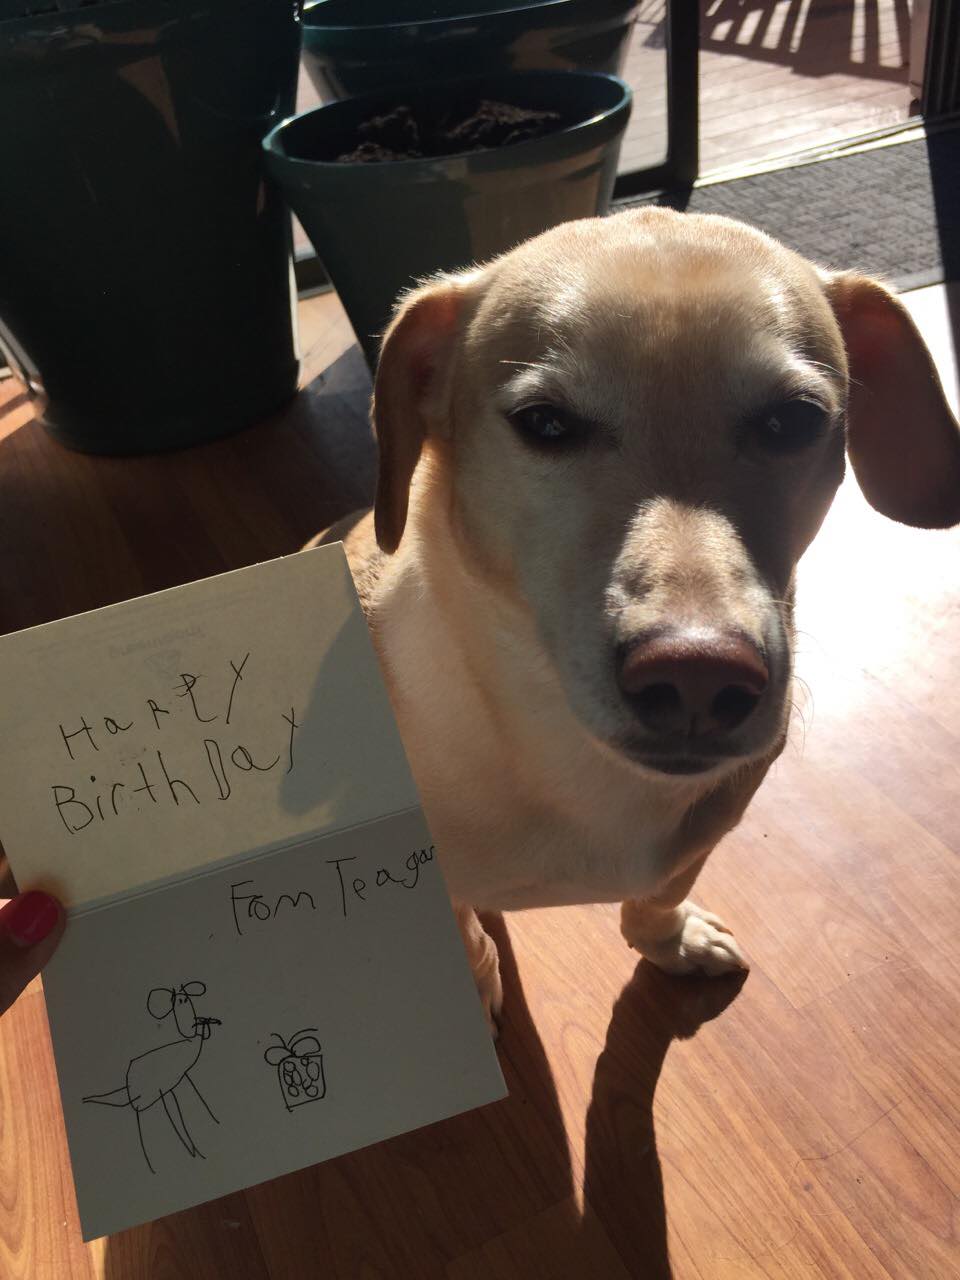 HaPPY
BirthDay
Fom Teagan